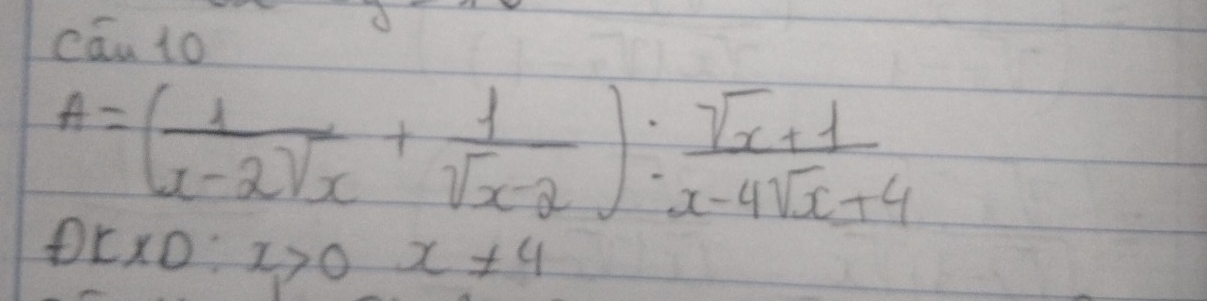 Câu 10
A = (1/(x-2√x) + 1/(√x-2)) : (√x+1)/(x-4√x+4)
ĐKXD: x>0 x≠4